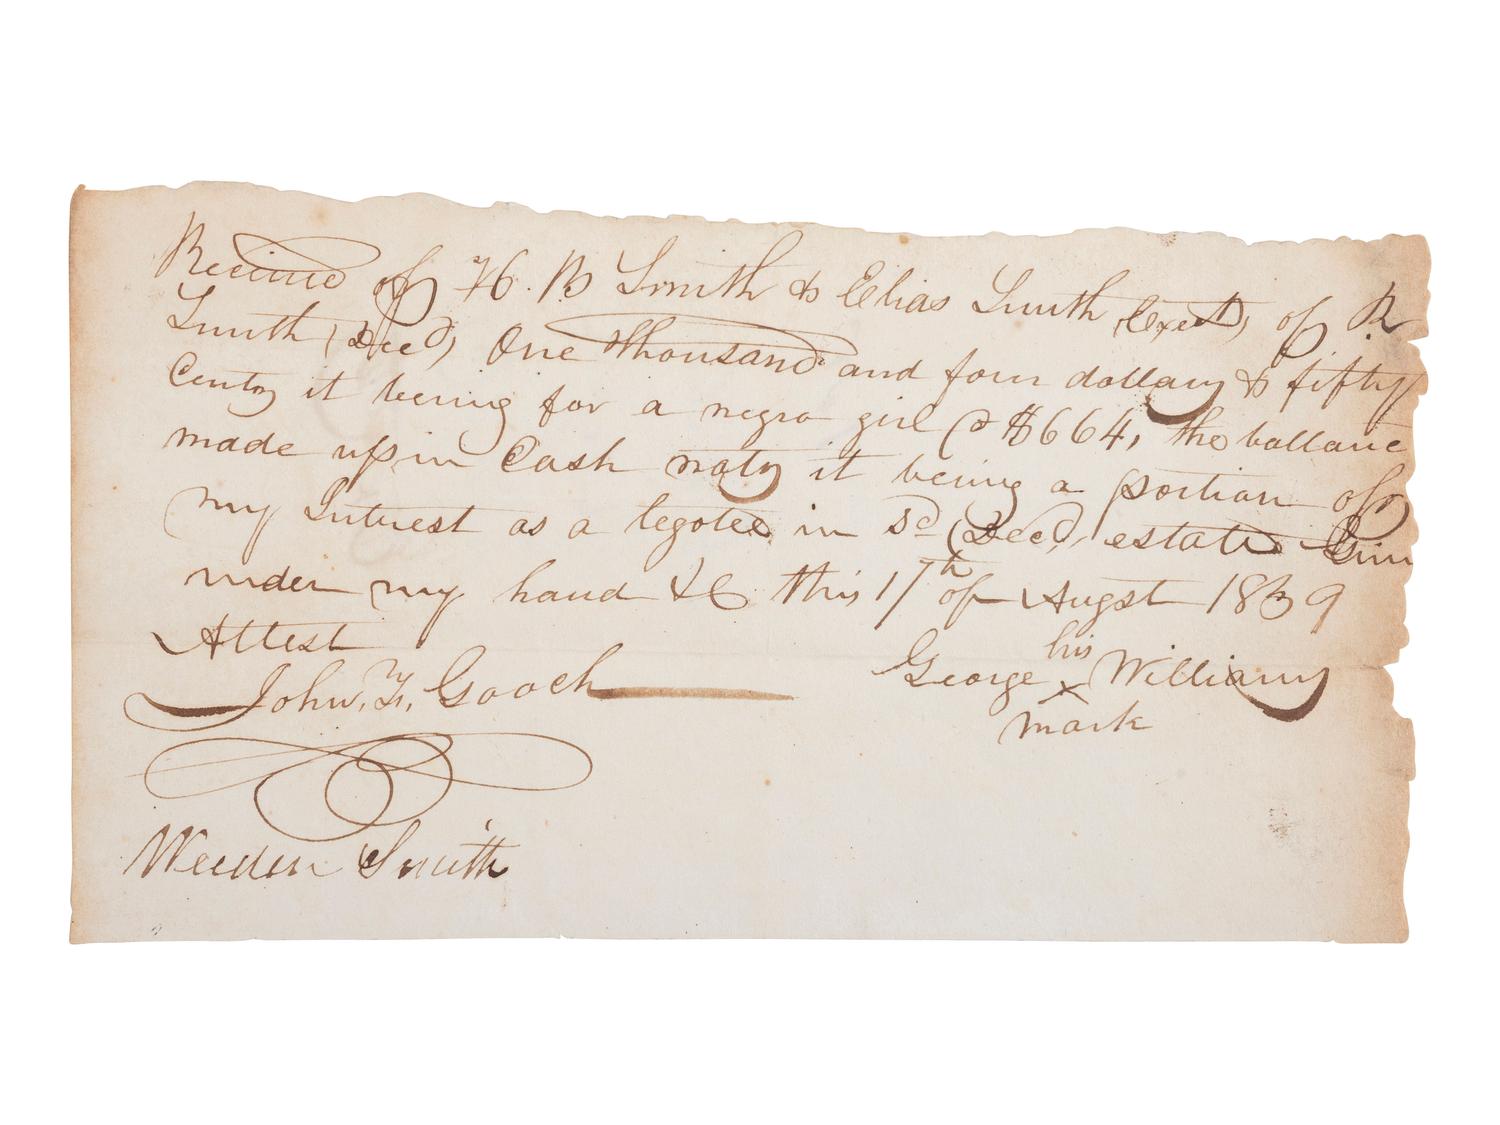 Received of H. B Smith & Elias Smith (Exect) of R
Smith (Decd) One thousand and four dollars & fifty
Cents it being for a negro girl @ $664, the ballanc
made up in Cash nots it being a portion of
my Interest as a legotee in sd (Decd) estate Givn
under my hand &C this 17th of Augst 1839
Attest
his
John, Y, Gooch George x Williams
mark
Weeden Smith